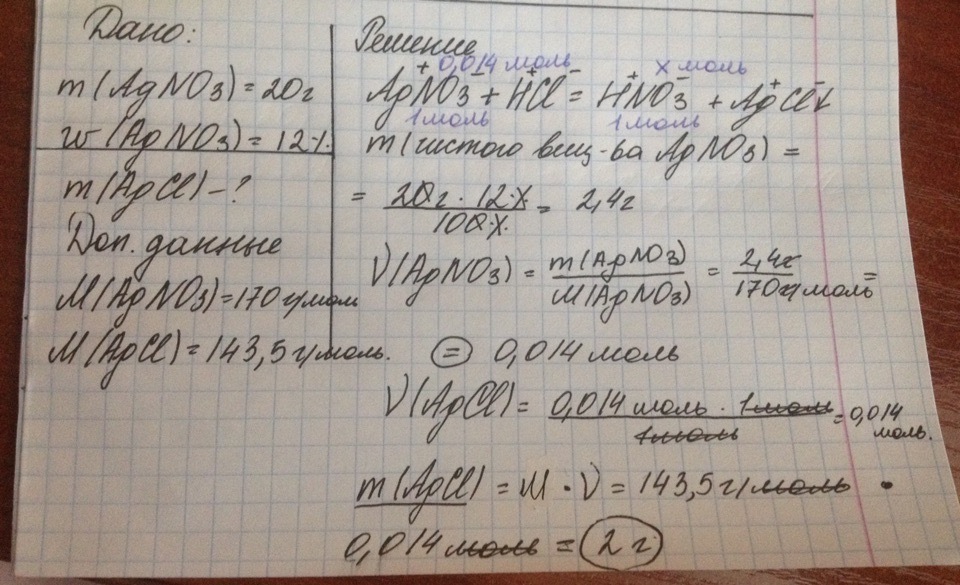 Дано:
m(AgNO3)=20г
w(AgNO3)=12%
m(AgCl)-?
Доп. данные
M(AgNO3)=170г/моль
M(AgCl)=143,5г/моль.
Решение
0,014 моль х моль
+ - + - + - + -
AgNO3 + HCl = HNO3 + AgCl↓
1моль 1моль
m(чистого вещ-ва AgNO3) =
= 20г · 12% / 100% = 2,4г
ν(AgNO3) = m(AgNO3) / M(AgNO3) = 2,4г / 170г/моль =
= 0,014 моль
ν(AgCl) = 0,014 моль · 1моль / 1моль = 0,014 моль.
m(AgCl) = M · ν = 143,5г/моль ·
0,014 моль = 2 г.